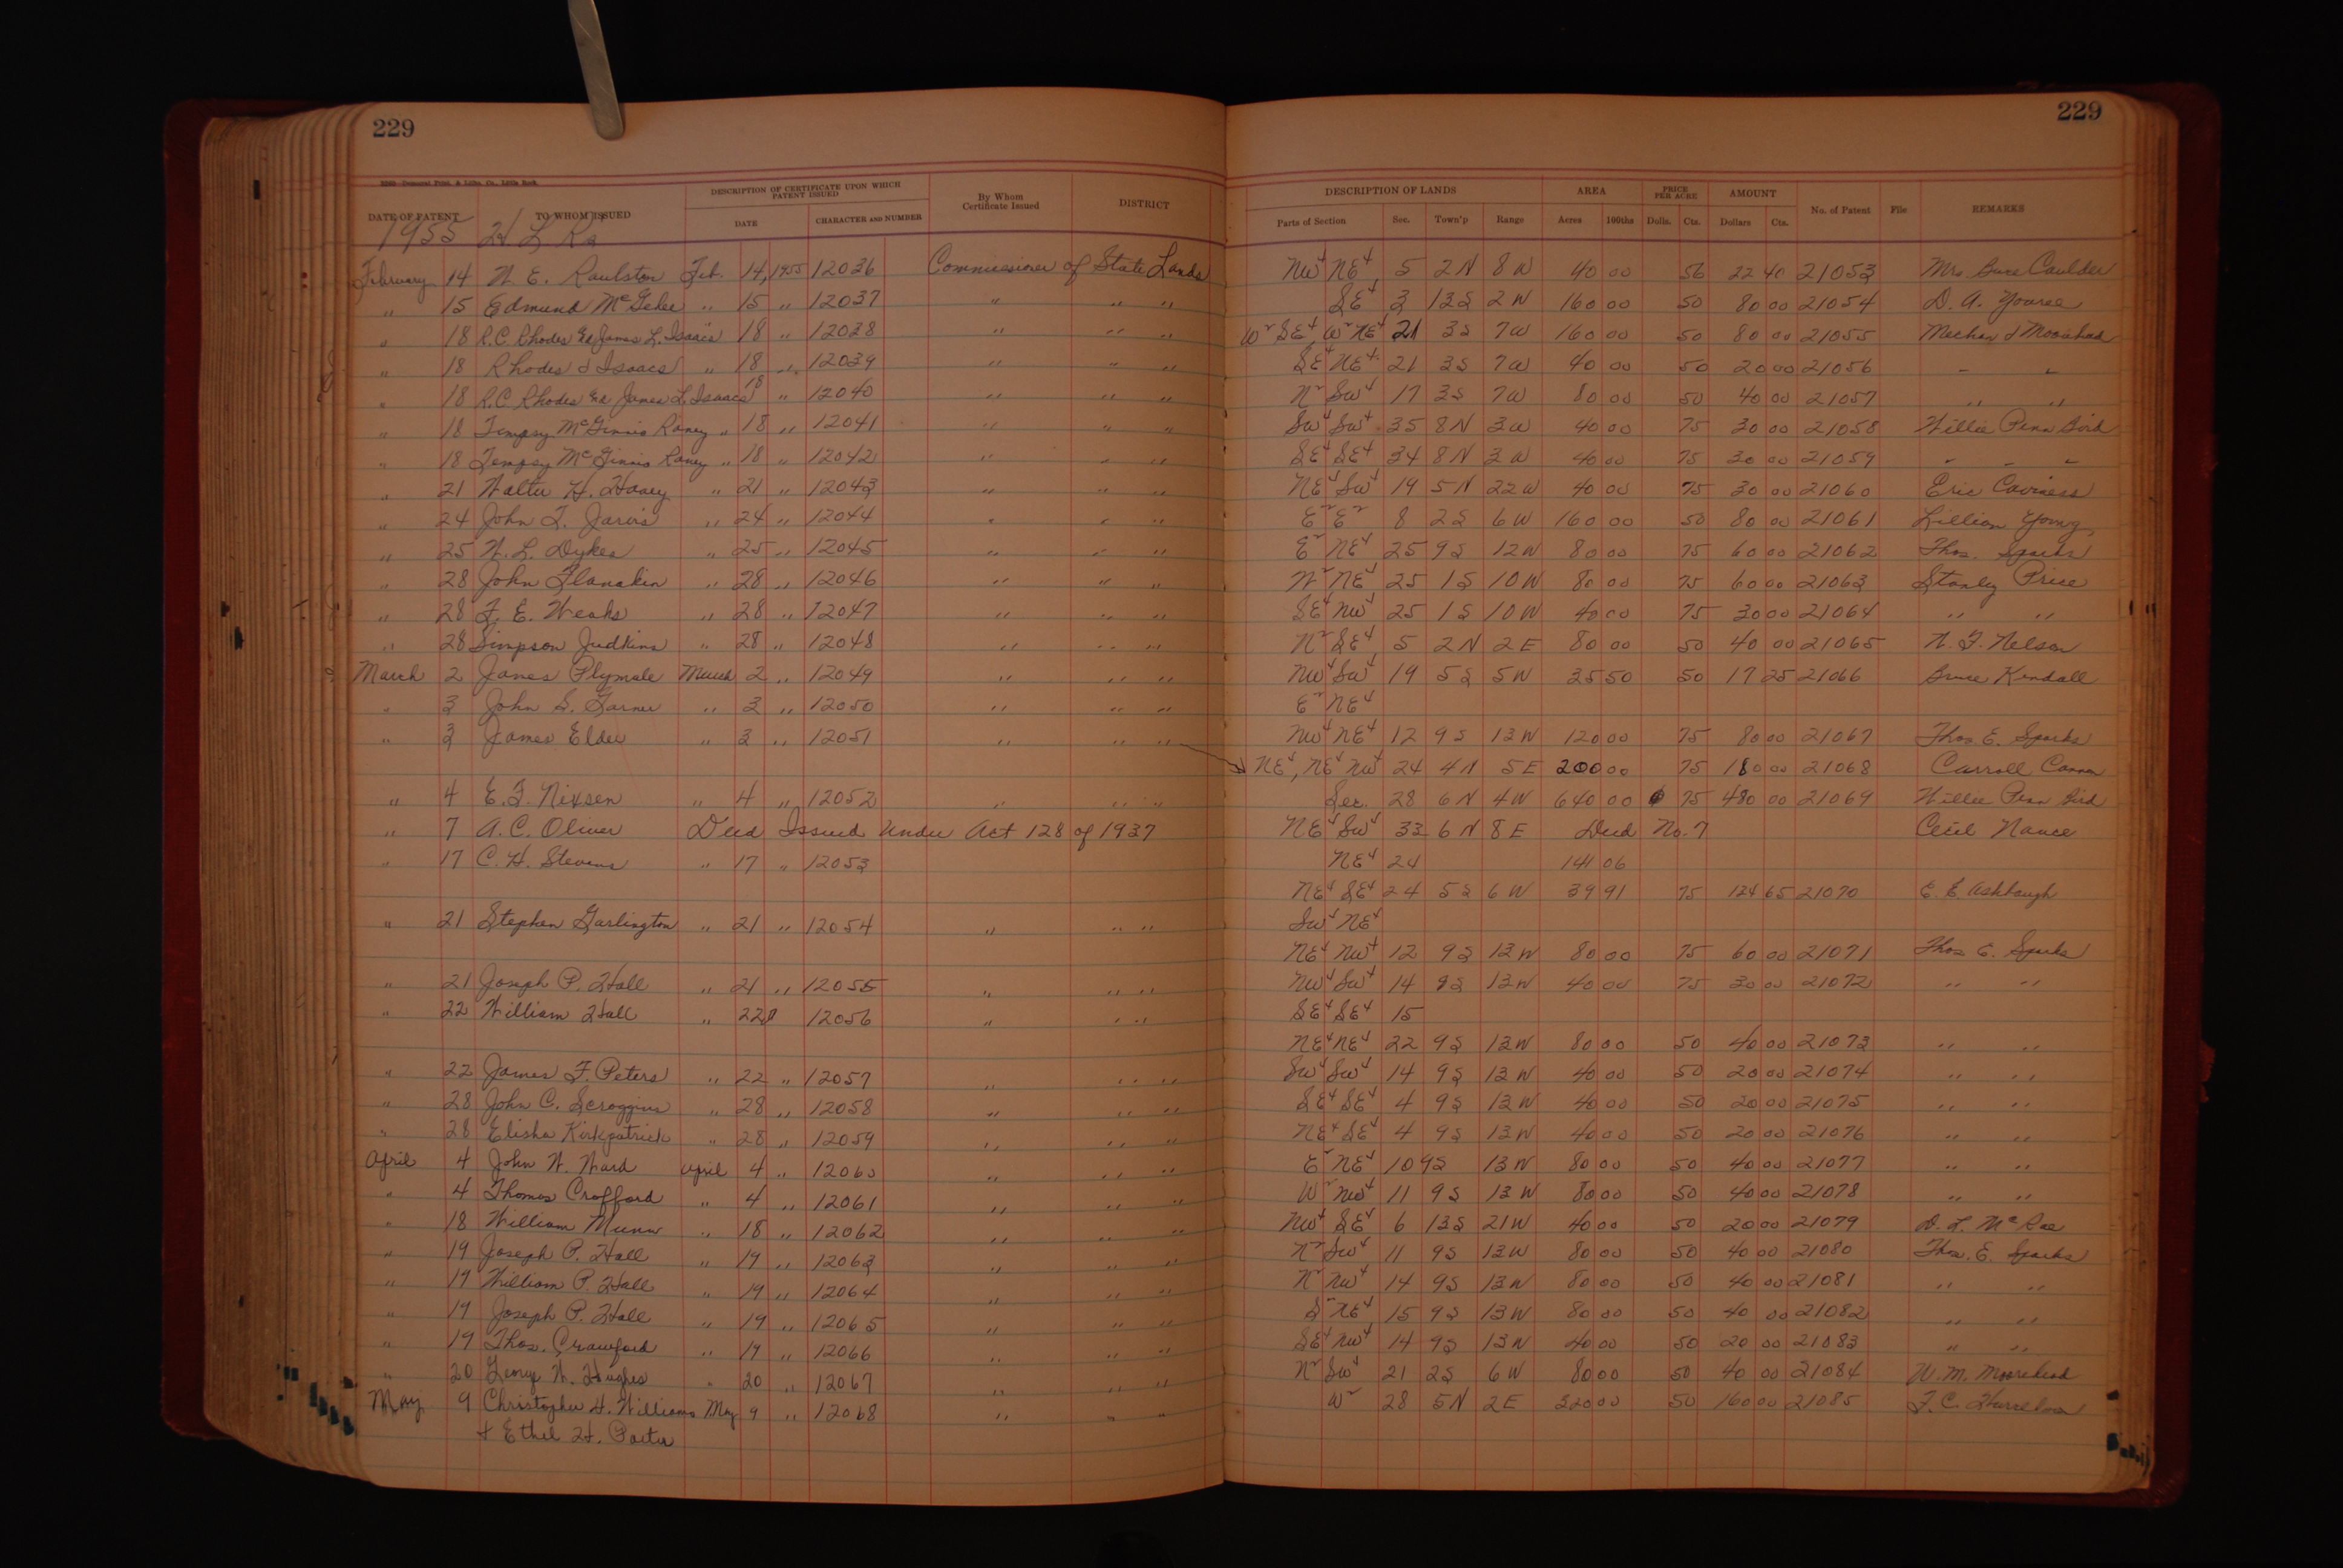 229 229
DATE OF PATENT TO WHOM ISSUED DESCRIPTION OF CERTIFICATE UPON WHICH PATENT ISSUED DATE CHARACTER AND NUMBER By Whom Certificate Issued DISTRICT DESCRIPTION OF LANDS Parts of Section Sec. Town'p Range AREA Acres 100ths PRICE PER ACRE Dolls. Cts. AMOUNT Dollars Cts. No. of Patent File REMARKS
1955
February 14 W. E. Raulston Feb. 14, 1955 12036 Commissioner of State Lands NW4 NE4 5 2N 8W 40 00 56 22 40 21053 Mrs. Caulder
" 15 Edmund McGehee " 15 " 12037 " " " SE4 3 13S 2W 160 00 50 80 00 21054 D. A. Youree
" 18 R.C. Rhodes Ex James L. Isaacs 18 " 12038 " " " W2 SE4, W2 NE4 21 3S 7W 160 00 50 80 00 21055
" 18 Rhodes & Isaacs " 18 " 12039 " " " SE4 NE4 21 3S 7W 40 00 50 20 00 21056 " "
" 18 R.C. Rhodes Ex James L. Isaacs 18 " 12040 " " " N2 SW4 17 3S 7W 80 00 50 40 00 21057 " "
" 18 Tempsy McGinnis Raney " 18 " 12041 " " " SW4 SW4 35 8N 3W 40 00 75 30 00 21058 Willie Penn Bird
" 18 Tempsy McGinnis Raney " 18 " 12042 " " " SE4 SE4 34 8N 3W 40 00 75 30 00 21059 " " "
" 21 Walter H. " 21 " 12043 " " " NE4 SW4 19 5N 22W 40 00 75 30 00 21060 Eric Caviness
" 24 John T. Jarvis " 24 " 12044 " " " E2 E2 8 2S 6W 160 00 50 80 00 21061 Lillian Young
" 25 W. L. Dykes " 25 " 12045 " " " E2 NE4 25 9S 12W 80 00 75 60 00 21062 Thos. Sparks
" 28 John Flanakin " 28 " 12046 " " " W2 NE4 25 1S 10W 80 00 75 60 00 21063 Stanley Price
" 28 F. E. Weaks " 28 " 12047 " " " SE4 NW4 25 1S 10W 40 00 75 30 00 21064 " "
" 28 Simpson Judkins " 28 " 12048 " " " N2 SE4 5 2N 2E 80 00 50 40 00 21065 N. F. Nelson
March 2 James Plymale March 2 " 12049 " " " NW4 SW4 19 5S 5W 35 50 50 17 25 21066 Bruce Kendall
" 3 John S. Garner " 3 " 12050 " " " E2 NE4
" 3 James Elder " 3 " 12051 " " " NW4 NE4 12 9S 13W 120 00 75 80 00 21067 Thos. E. Sparks
NE4, NE4 NW4 24 4N 5E 200 00 75 180 00 21068 Carroll Cannon
" 4 E. F. Nixsen " 4 " 12052 " " " Sec. 28 6N 4W 640 00 75 480 00 21069 Willie Penn Bird
" 7 A. C. Oliver Deed Issued Under Act 128 of 1937 NE4 SW4 33 6N 8E Deed No. 7 Cecil Nance
" 17 C. H. Stevens " 17 " 12053 NE4 24 141 06
NE4 SE4 24 5S 6W 39 91 75 124 65 21070 E. E. Ashbaugh
" 21 Stephen Garlington " 21 " 12054 " " " SW4 NE4
NE4 NW4 12 9S 13W 80 00 75 60 00 21071 Thos E. Sparks
" 21 Joseph P. Hall " 21 " 12055 " " " NW4 SW4 14 9S 13W 40 00 75 30 00 21072 " "
" 22 William Hall " 22 12056 " " " SE4 SE4 15
NE4 NE4 22 9S 13W 80 00 50 40 00 21073 " "
" 22 James F. Peters " 22 " 12057 " " " SW4 SW4 14 9S 13W 40 00 50 20 00 21074 " "
" 28 John C. Scroggins " 28 " 12058 " " " SE4 SE4 4 9S 13W 40 00 50 20 00 21075 " "
" 28 Elisha Kirkpatrick " 28 " 12059 " " " NE4 SE4 4 9S 13W 40 00 50 20 00 21076 " "
April 4 John W. Ward April 4 " 12060 " " " E2 NE4 10 9S 13W 80 00 50 40 00 21077 " "
" 4 Thomas Crofford " 4 " 12061 " " " W2 NW4 11 9S 13W 80 00 50 40 00 21078 " "
" 18 William Munn " 18 " 12062 " " " NW4 SE4 6 13S 21W 40 00 50 20 00 21079 D. L. McRae
" 19 Joseph P. Hall " 19 " 12063 " " " N2 SW4 11 9S 13W 80 00 50 40 00 21080 Thos. E. Sparks
" 19 William P. Hall " 19 " 12064 " " " N2 NW4 14 9S 13W 80 00 50 40 00 21081 " "
" 19 Joseph P. Hall " 19 " 12065 " " " S2 NE4 15 9S 13W 80 00 50 40 00 21082 " "
" 19 Thos. Crawford " 19 " 12066 " " " SE4 NW4 14 9S 13W 40 00 50 20 00 21083 " "
" 20 George W. Hughes " 20 " 12067 " " " N2 SW4 21 2S 6W 80 00 50 40 00 21084 W. M. Moorehead
May 9 Christopher H. Williams May 9 " 12068 " " " W2 28 5N 2E 320 00 50 160 00 21085 F. C.
& Ethel H. Porter